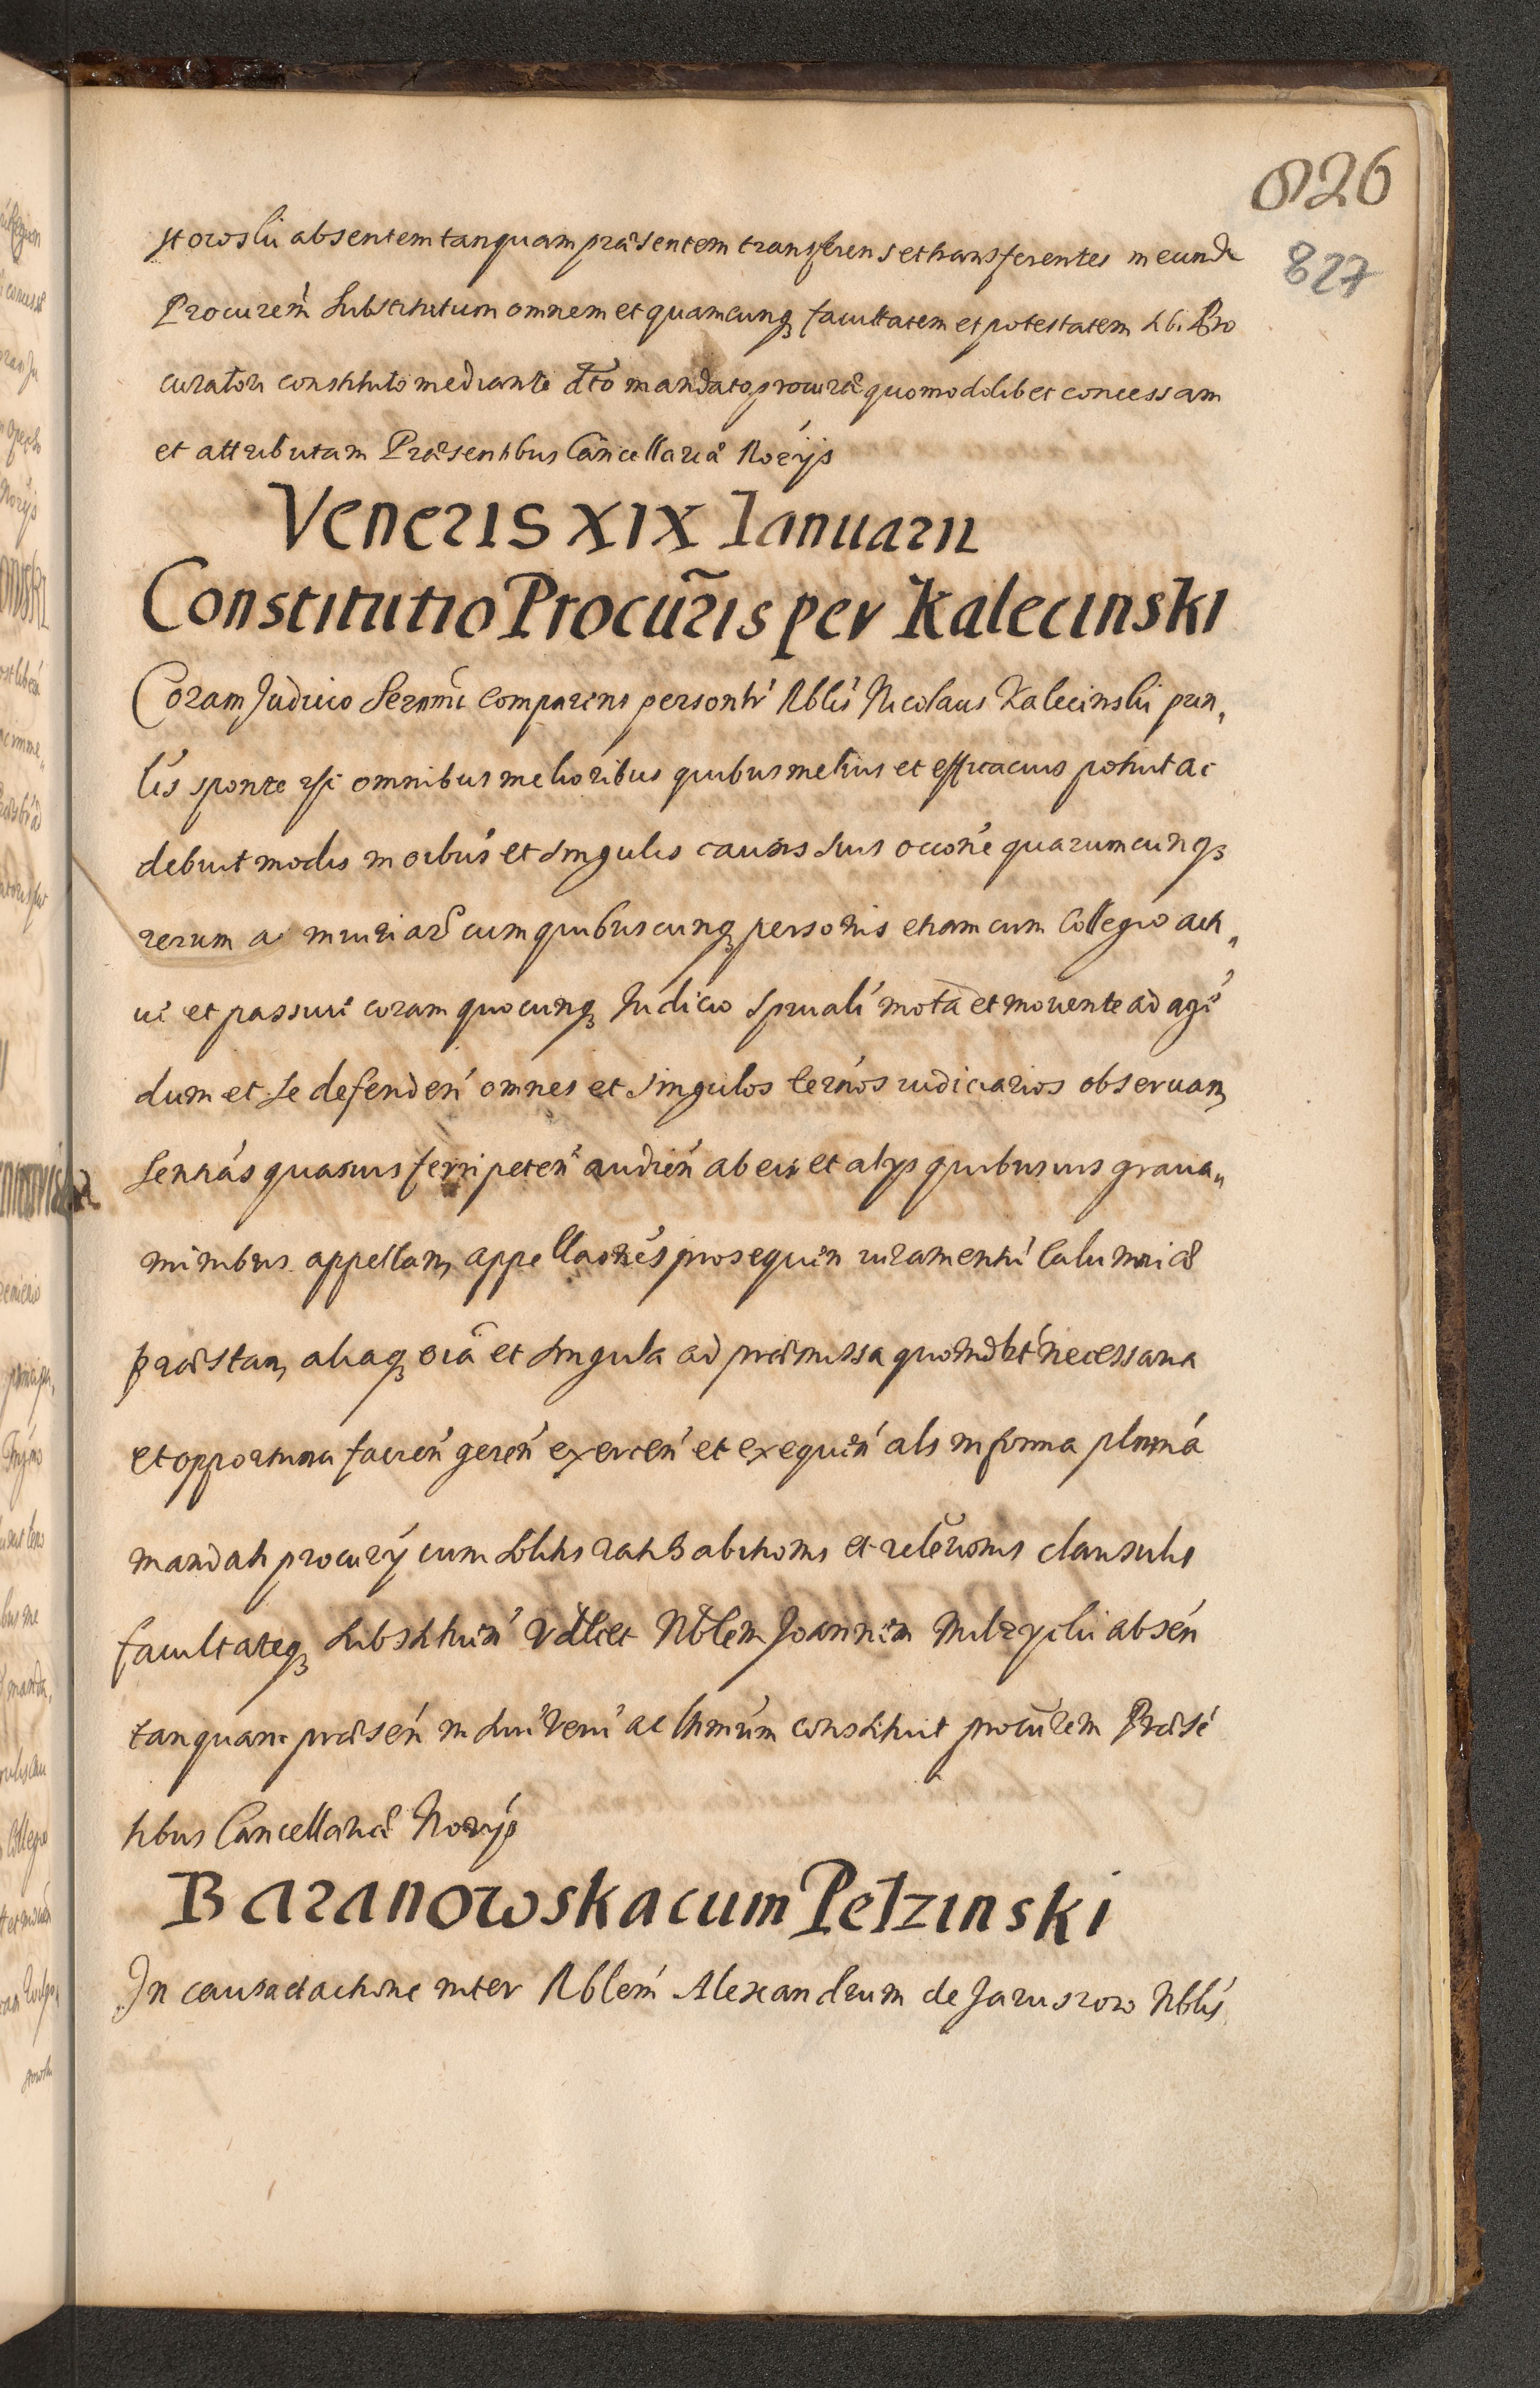 826
827
storoski absentem tanquam præsentem transferens et transferentes in eunde
Procurem̃ substitutum omnem et quamcunq facultatem et potestatem sbi Pro
curatori constituto mediante dto mandato procuræ quomodolibet concessam
et attributam Præsentibus Cancellariæ Norijs
Veneris XIX Ianuarii
Constitutio Procuris per Kalecinski
Coram Judicio Seranie comparens personlr Nblis Nicolaus Kalecinski prin,
lis sponte omnibus melioribus quibus melius et efficacius potuit ac
debuit modis in oibus et singulis causis suis occone quarumcunq
rerum ac iniuriarũ cum quibuscunq personis etiam cum Collegio acti,
ue et passiue coram quocunq Iudicio spruali mota et mouente ad agē
dum et se defenden omnes et singulos termos iudiciarios obseruan,
Senttas quasuis ferri peten audien ab eis et alijs quibusuis graua,,
minibus appellan, appellaones prosequin iuramenti Calumniæ
præstan, aliaq oia et singula ad præmissa quomdlbt necessaria
et opportuna facien geren exercen et exequin als in forma plnma
mandati procurij cum solitis ratihabitionis et releuonis clausulis
facultateq substituen vdlicet Nblem Joannem Milzycki absen
tanquam præsen in sui veru ac ltimum constituit procurem Præsē
tibus Cancellariæ Norijs
Baranowska cum Petzinski
In causa et actione inter Nblem Alexandrum de Jaruszow Nblis